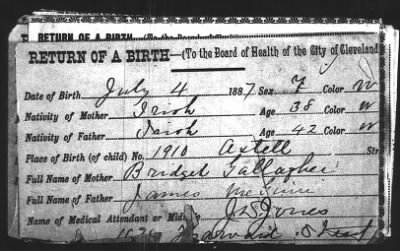 RETURN OF A BIRTH
RETURN OF A BIRTH—(To the Board of Health of the City of Cleveland
Date of Birth July 4 1887 Sex F Color W
Nativity of Mother Irish Age 38 Color W
Nativity of Father Irish Age 42 Color W
Place of Birth (of child) No. 1910 Axtell Str
Full Name of Mother Bridget Gallagher
Full Name of Father James McGuire
Name of Medical Attendant or Midwife J D Jones
Harvard Street